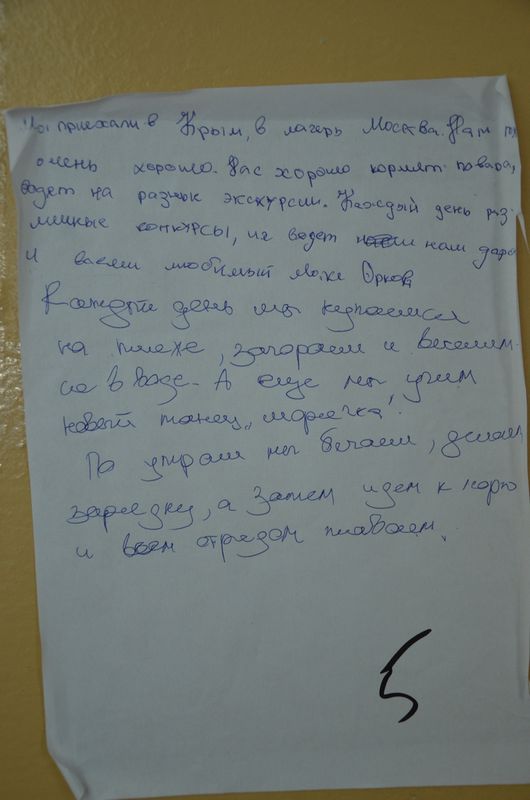 Мы приехали в Крым, в лагерь Москва. Нам
очень хорошо. Нас хорошо кормят повара,
водят на разные экскурсии. Каждый день раз
личные конкурсы, их ведет нам
И всеми любимый
Каждый день мы купаемся
на пляже, загораем и веселим
ся в воде. А еще мы учим
новый танец „морячка“.
По утрам мы бегаем, делаем
зарядку, а затем идем к морю
и всем отрядом плаваем.
5